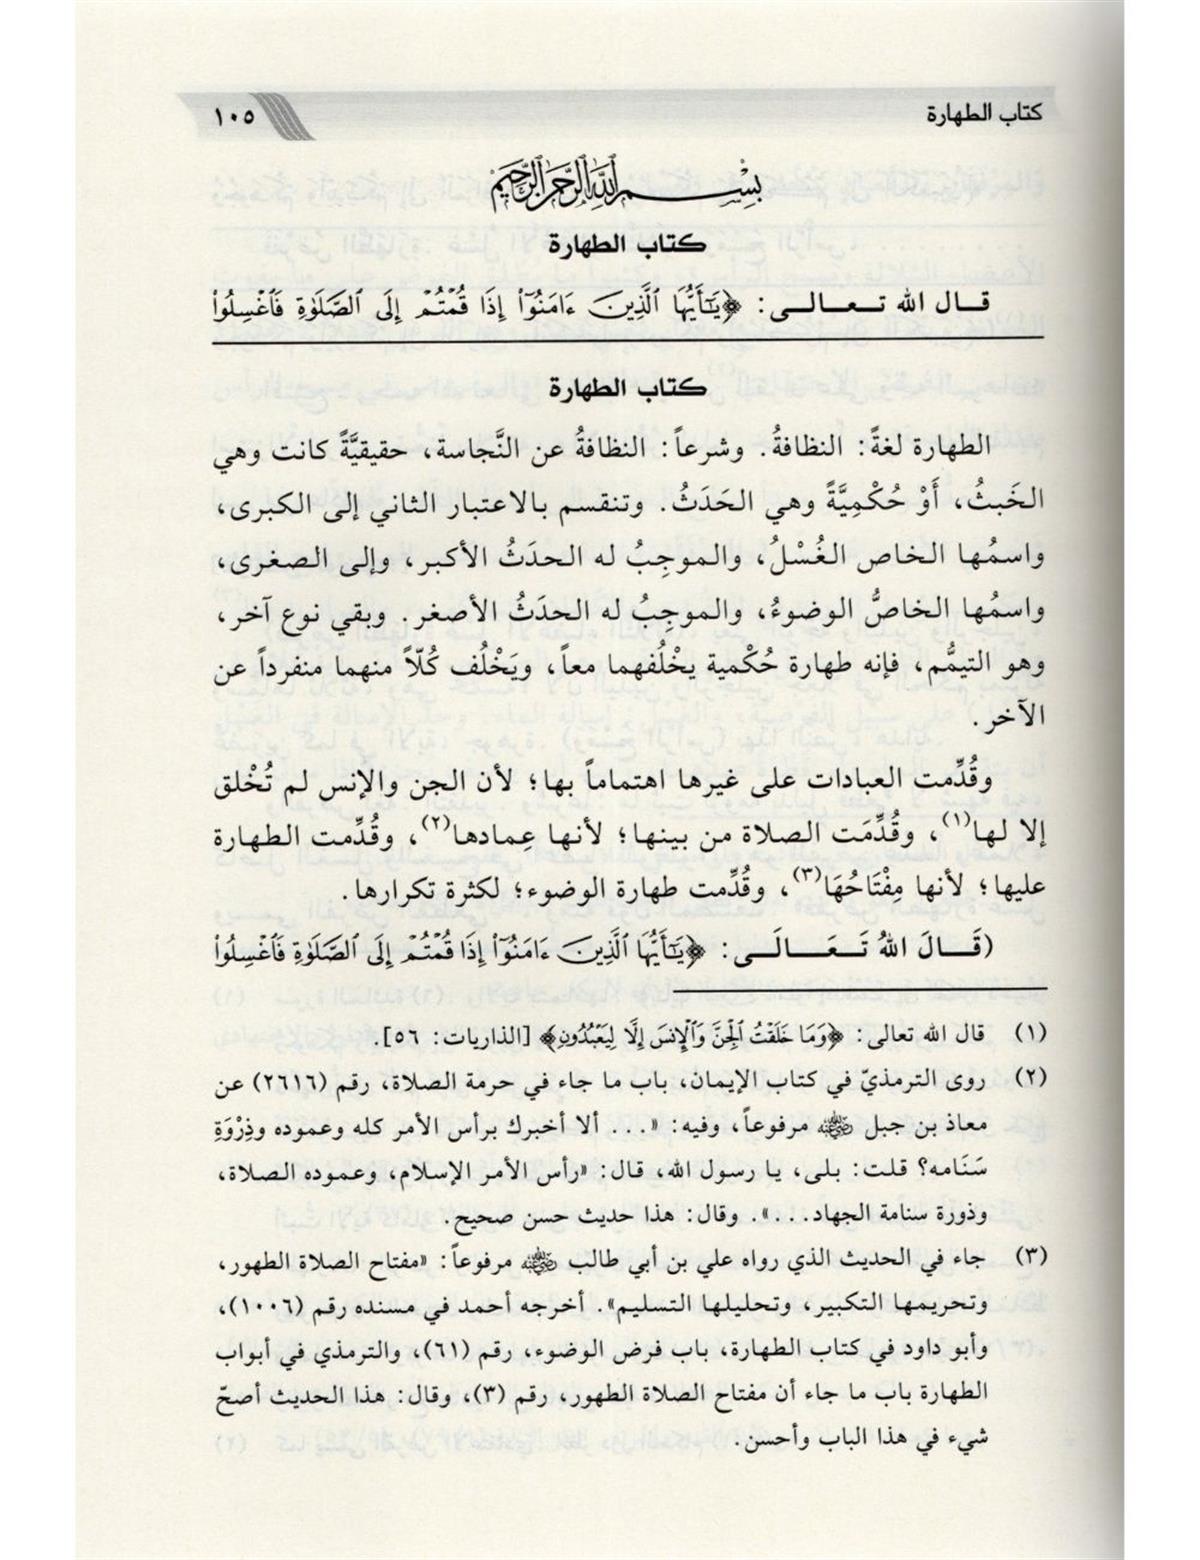 كتاب الطهارة ١٠٥
بِسْمِ ٱللَّهِ ٱلرَّحْمَٰنِ ٱلرَّحِيمِ
كتاب الطهارة
قال الله تعالى: ﴿يَٰٓأَيُّهَا ٱلَّذِينَ ءَامَنُوٓا۟ إِذَا قُمْتُمْ إِلَى ٱلصَّلَوٰةِ فَٱغْسِلُوا۟
كتاب الطهارة
الطهارة لغةً: النظافةُ. وشرعاً: النظافةُ عن النَّجاسة، حقيقيَّةً كانت وهي
الخَبثُ، أَوْ حُكْمِيَّةً وهي الحَدَثُ. وتنقسم بالاعتبار الثاني إلى الكبرى،
واسمُها الخاص الغُسْلُ، والموجِبُ له الحدَثُ الأكبر، وإلى الصغرى،
واسمُها الخاصُّ الوضوءُ، والموجِبُ له الحدَثُ الأصغر. وبقي نوع آخر،
وهو التيمُّم، فإنه طهارة حُكْمية يخْلُفهما معاً، ويَخْلُف كُلّاً منهما منفرداً عن
الآخر.
وقُدِّمت العبادات على غيرها اهتماماً بها؛ لأن الجن والإنس لم تُخْلق
إلا لها(١)، وقُدِّمَت الصلاة من بينها؛ لأنها عِمادها(٢)، وقُدِّمت الطهارة
عليها؛ لأنها مِفْتَاحُهَا(٣)، وقُدِّمت طهارة الوضوء؛ لكثرة تكرارها.
(قَالَ اللهُ تَعَالَى: ﴿يَٰٓأَيُّهَا ٱلَّذِينَ ءَامَنُوٓا۟ إِذَا قُمْتُمْ إِلَى ٱلصَّلَوٰةِ فَٱغْسِلُوا۟
(١) قال الله تعالى: ﴿وَمَا خَلَقْتُ ٱلْجِنَّ وَٱلْإِنسَ إِلَّا لِيَعْبُدُونِ﴾ [الذاريات: ٥٦].
(٢) روى الترمذيّ في كتاب الإيمان، باب ما جاء في حرمة الصلاة، رقم (٢٦١٦) عن
معاذ بن جبل رضي الله عنه مرفوعاً، وفيه: «... ألا أخبرك برأس الأمر كله وعموده وذِرْوَةِ
سَنَامه؟ قلت: بلى، يا رسول الله، قال: «رأس الأمر الإسلام، وعموده الصلاة،
وذورة سنامة الجهاد...». وقال: هذا حديث حسن صحيح.
(٣) جاء في الحديث الذي رواه علي بن أبي طالب رضي الله عنه مرفوعاً: «مفتاح الصلاة الطهور،
وتحريمها التكبير، وتحليلها التسليم». أخرجه أحمد في مسنده رقم (١٠٠٦)،
وأبو داود في كتاب الطهارة، باب فرض الوضوء، رقم (٦١)، والترمذي في أبواب
الطهارة باب ما جاء أن مفتاح الصلاة الطهور، رقم (٣)، وقال: هذا الحديث أصحّ
شيء في هذا الباب وأحسن.